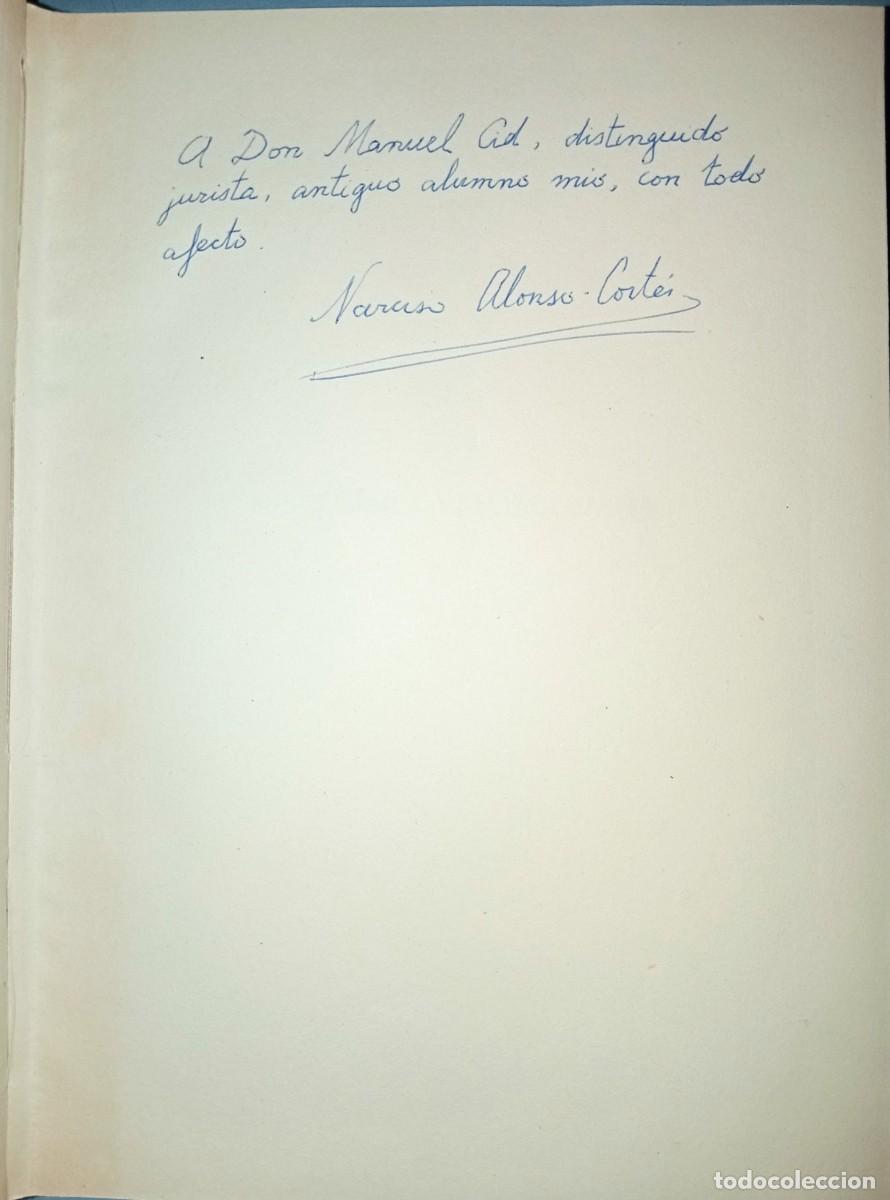 A Don Manuel Cid, distinguido
jurista, antiguo alumno mio, con todo
afecto.
Narciso Alonso-Cortés
todocoleccion